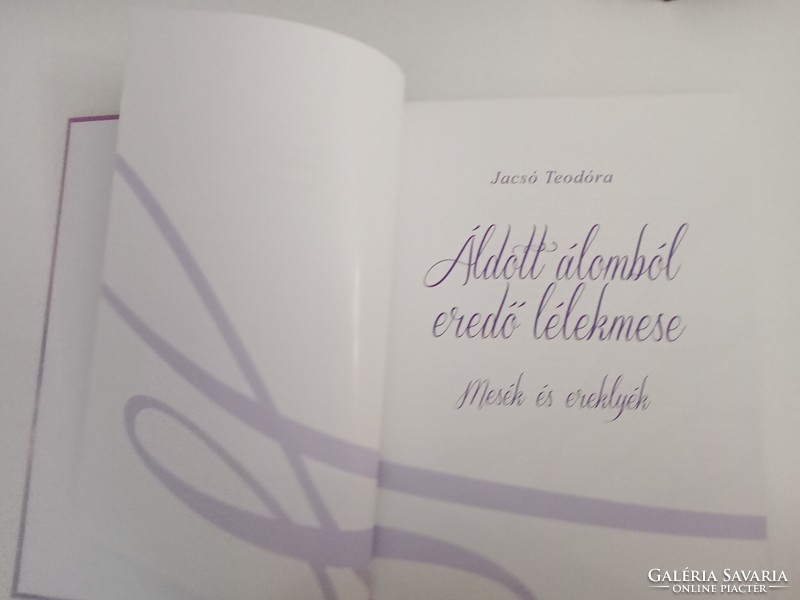 Jacsó Teodóra
Áldott álomból
eredő lélekmese
Mesék és ereklyék
GALÉRIA SAVARIA
ONLINE PIACTÉR